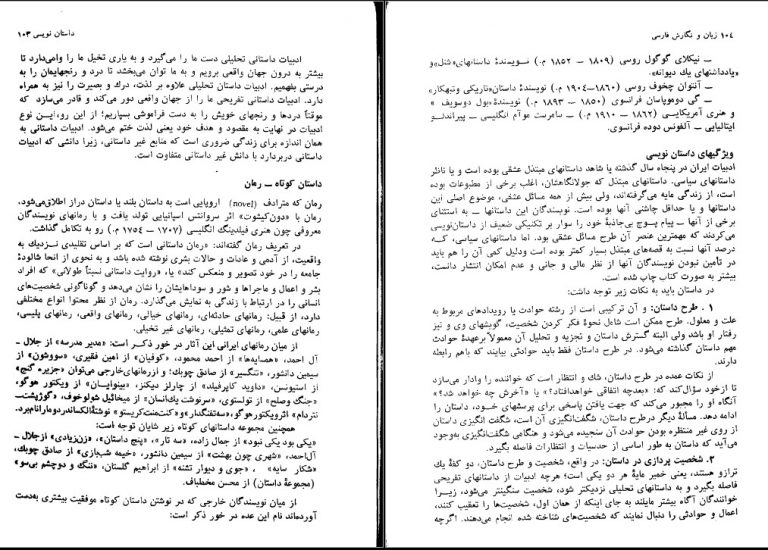 داستان نویسی ۱۰۳
ادبیات داستانی تحلیلی دست ما را می‌گیرد و به یاری تخیل ما را وامی‌دارد تا
بیشتر به درون جهان واقعی برویم و به ما توان می‌بخشد تا درد و رنجهایمان را به
درستی بفهمیم. ادبیات داستان تحلیلی علاوه بر لذت، درك و بصیرت را نیز به همراه
دارد. ادبیات داستانی تفریحی ما را از جهان واقعی دور می‌کند و قادر می‌سازد که
موقتاً دردها و رنجهای خویش را به دست فراموشی بسپاریم؛ از این رو، این نوع
ادبیات در نهایت به مقصود و هدف خود یعنی لذت ختم می‌شود. ادبیات داستانی به
همان اندازه برای زندگی ضروری است که منابع غیر داستانی، زیرا دانشی که ادبیات
داستانی دربردارد با دانش غیر داستانی متفاوت است.
داستان کوتاه ــ رمان
رمان که مترادف (novel) اروپایی است به داستان بلند یا داستان دراز اطلاق‌می‌شود،
رمان با «دون‌کیشوت» اثر سروانتس اسپانیایی تولد یافت و با رمانهای نویسندگان
معروفی چون هنری فیلدینگ انگلیسی (۱۷۰۷ ــ ۱۷۵۴ م.) رو به تکامل گذاشت.
در تعریف رمان گفته‌اند: «رمان داستانی است که بر اساس تقلیدی نزدیك به
واقعیت، از آدمی و عادات و حالات بشری نوشته شده باشد و به نحوی از انحا شالودهٔ
جامعه را در خود تصویر و منعکس کند» یا، «روایت داستانی نسبتاً طولانی» که افراد
بشر و اعمال و ماجراها و شور و سوداهایشان را نشان می‌دهد و گوناگونی شخصیت‌های
انسانی را در ارتباط با زندگی به نمایش می‌گذارد. رمان از نظر محتوا انواع مختلفی
دارد، از قبیل: رمانهای حادثه‌ای، رمانهای خیالی، رمانهای واقعی، رمانهای پلیسی،
رمانهای علمی، رمانهای تمثیلی، رمانهای غیر تخیلی.
از میان رمانهای ایرانی این آثار در خور ذکر است: «مدیر مدرسه» از جلال ــ
آل احمد، «همسایه‌ها» از احمد محمود، «کوفیان» از امین فقیری، «سووشون» از
سیمین دانشور، «تنگسیر» از صادق چوبك؛ و از رمانهای خارجی می‌توان «جزیره گنج»
از استیونسن، «داوید کاپرفیلد» از چارلز دیکنز، «بینوایان» از ویکتور هوگو،
«جنگ وصلح» از تولستوی، «سرنوشت یك‌انسان» از میخائیل شولوخوف، «گوژپشت‌ــ
نتردام» اثرویکتورهوگو،«سه‌تفنگدار»و«کنت‌منت‌کریستو» نوشتهٔ‌الکساندردومارانام‌برد.
همچنین مجموعه داستانهای کوتاه زیر شایان توجه است:
«یکی بود یکی نبود» از جمال زاده، «سه تار»، «پنج داستان»، «زن‌زیادی» ازجلال‌ــ
آل‌احمد، «شهری چون بهشت» از سیمین دانشور، «خیمه شب‌بازی» از صادق چوبك،
«شکار سایه» ، «جوی و دیوار تشنه» از ابراهیم گلستان، «تنگ و دوچشم بی‌سو»
(مجموعهٔ داستان) از محسن مخملباف.
از میان نویسندگان خارجی که در نوشتن داستان کوتاه موفقیت بیشتری به‌دست
آورده‌اند نام این عده در خور ذکر است:
۱۰۴ زبان و نگارش فارسی
ــ نیکلای گوگول روسی (۱۸۰۹ ــ ۱۸۵۲ م.) نویسندهٔ داستانهای«شنل»و
«یادداشتهای یك دیوانه».
ــ آنتوان چخوف روسی (۱۸۶۰ــ۱۹۰۴ م.) نویسندهٔ داستان«تاریکی وتبهکار»
ــ گی دوموپاسان فرانسوی (۱۸۵۰ ــ ۱۸۹۳ م.) نویسندهٔ«بول دوسویف »
و هنری آمریکایی (۱۸۶۲ ــ ۱۹۱۰ م.) ــ سامرست موآم انگلیسی ــ پیراندلو
ایتالیایی ــ آلفونس دوده فرانسوی.
ویژگیهای داستان نویسی
ادبیات ایران در پنجاه سال گذشته یا شاهد داستانهای مبتذل عشقی بوده است و یا ناظر
داستانهای سیاسی. داستانهای مبتذل که جولانگاهشان، اغلب برخی از مطبوعات بوده
است، از زندگی مایه می‌گرفته‌اند، ولی بیش از همه مسائل عشقی، موضوع اصلی این
داستانها و یا حداقل چاشنی آنها بوده است. نویسندگان این داستانها ــ به استثنای
برخی از آنها ــ پیام پوچ بی‌جاذبهٔ خود را سوار بر تکنیکی ضعیف از داستان‌نویسی
می‌کردند که مهمترین عنصر آن طرح مسائل عشقی بود. اما داستانهای سیاسی، کــه
درصد آنها نسبت به قصه‌های مبتذل بسیار کمتر بوده است ودلیل کمی آن را هم باید
در تأمین نبودن نویسندگان آنها از نظر مالی و جانی و عدم امکان انتشار دانست،
بیشتر به صورت کتاب چاپ شده است.
در داستان باید به نکات زیر توجه داشت:
۱ . طرح داستان: و آن ترکیبی است از رشته حوادث یا رویدادهای مربوط به
علت و معلول. طرح ممکن است شامل نحوهٔ فکر کردن شخصیت، گویشهای وی و نیز
رفتار او باشد ولی البته گسترش داستان و تجزیه و تحلیل آن معمولاً برعهدهٔ حوادث
مهم داستان گذاشته می‌شود. در طرح داستان فقط باید حوادثی بیایند که باهم رابطه
دارند.
از نکات عمده در طرح داستان، شك و انتظار است که خواننده را وادار می‌سازد
تا ازخود سؤال‌کند که: «بعدچه اتفاقی خواهدافتاد؟» یا «آخرش چه خواهد شد؟»
آنگاه او را مجبور می‌کند که جهت یافتن پاسخی برای پرسشهای خــود، داستان را
ادامه دهد. مسألهٔ دیگر درطرح داستان، شگفت‌انگیزی آن است، شگفت انگیزی داستان
از روی غیر منتظره بودن حوادث آن سنجیده می‌شود و هنگامی شگفت‌انگیزی به‌وجود
می‌آید که داستان به طور اساسی از حدسیات و انتظارات فاصله بگیرد.
۲. شخصیت پردازی در داستان: در واقع، شخصیت و طرح داستان، دو کفهٔ یك
ترازو هستند، یعنی خمیر مایهٔ هر دو یکی است؛ هرچه ادبیات از داستانهای تفریحی
فاصله بگیرد و به داستانهای تحلیلی نزدیکتر شود، شخصیت سنگینتر می‌شود، زیــرا
خوانندگان آگاه بیشتر مایلند به جای اینکه از همان اول، شخصیت‌ها را تعقیب کنند،
اعمال و حوادثی را دنبال نمایند که شخصیت‌های شناخته شده انجام می‌دهند. اگرچه